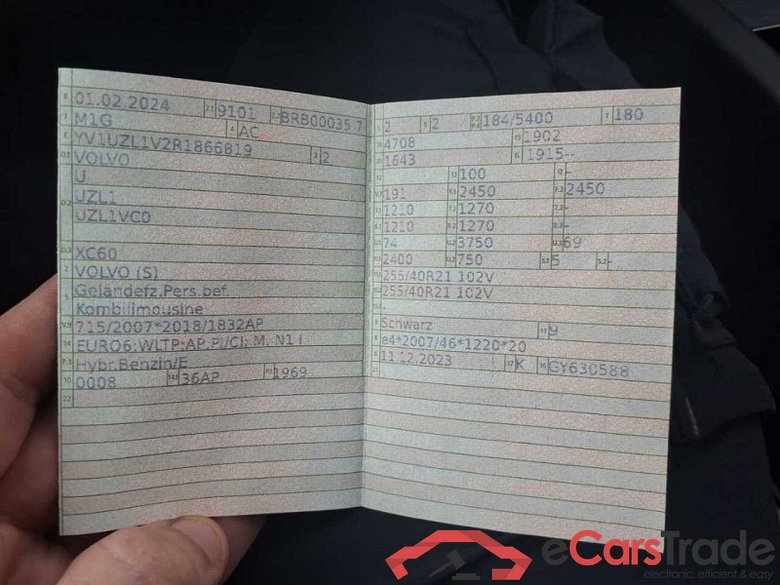 B 01.02.2024 2.1 9101 2.2 BRB00035 7
J M1G 4 AC
E YV1UZL1V2R1866819 3 2
D.1 VOLVO
U
D.2 UZL1
UZL1VC0
D.3 XC60
2 VOLVO (S)
5 Geländefz.Pers.bef.
Kombilimousine
V.9 715/2007*2018/1832AP
14 EURO6;WLTP;AP,PI/CI; M, N1 I
P.3 Hybr.Benzin/E
10 0008 14.1 36AP P.1 1969
22
L 2 9 2 P.2 P.4 184/5400 T 180
18 4708 19 1902
20 1643 G 1915--
12 - 13 100 Q -
V.7 191 F.1 2450 F.2 2450
7.1 1210 7.2 1270 7.3 -
8.1 1210 8.2 1270 8.3 -
U.1 74 U.2 3750 U.3 69
O.1 2400 O.2 750 S.1 5 S.2 -
15.1 255/40R21 102V
15.2 255/40R21 102V
-
R Schwarz 11 9
K e4*2007/46*1220*20
6 11.12.2023 17 K 16 GY630588
21
eCarsTrade
electronic, efficient & easy